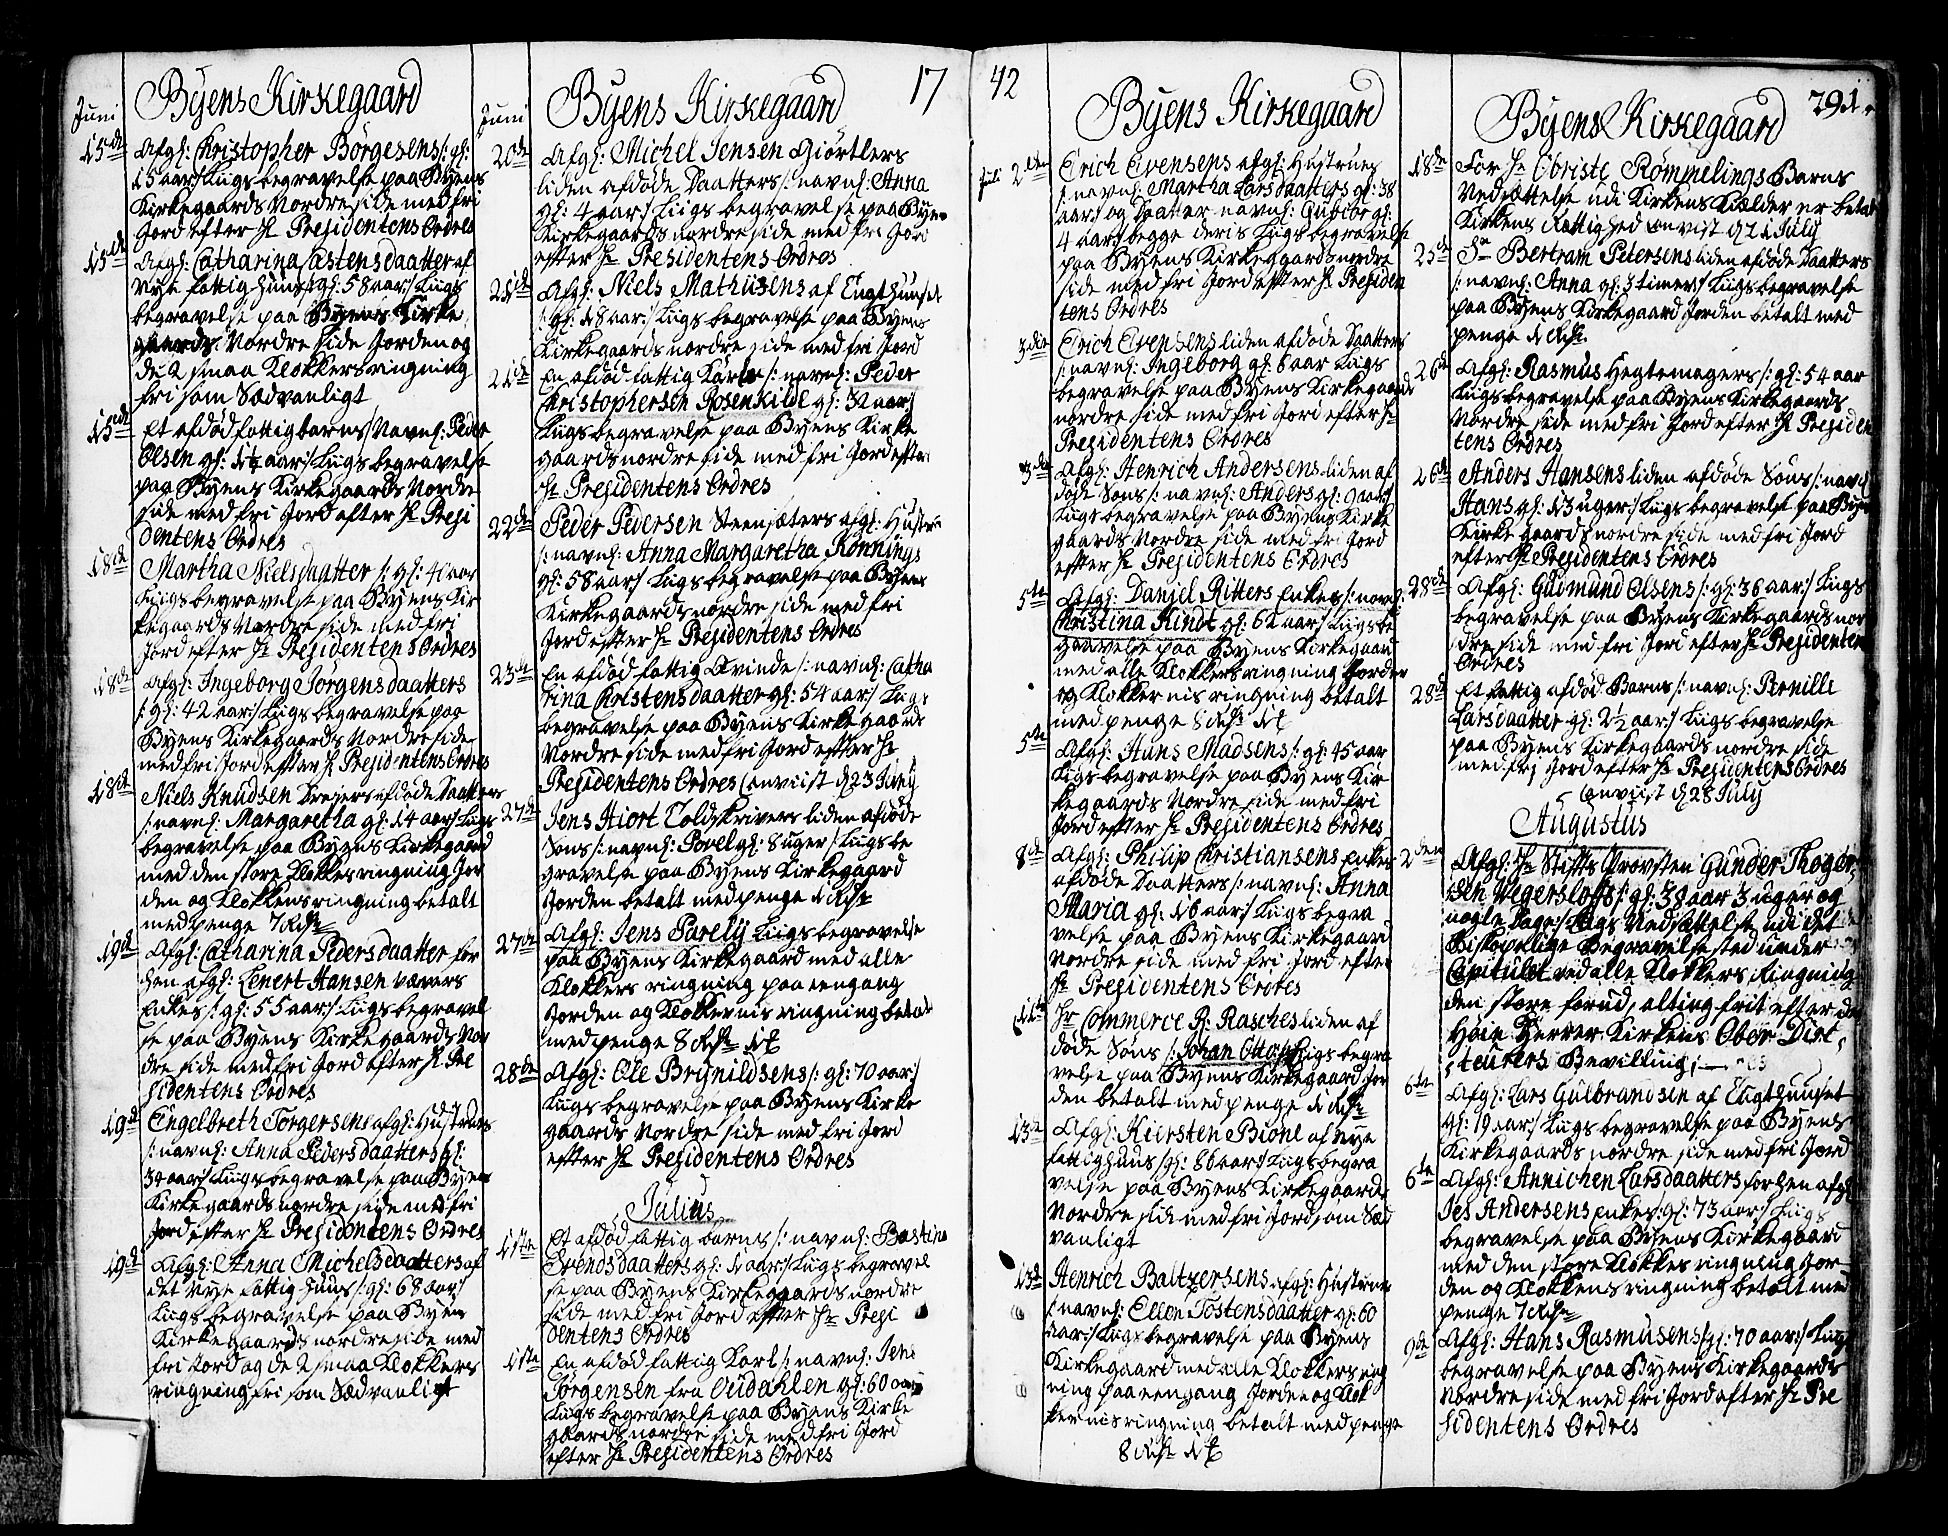 Byens Kirkegaard
Juni
15de Afgl: Christopher Börgesens /: gl:
15 aar:/ Liigs begravelse paa Byens
Kirkegaards Nordre side med fri
Jord efter Hr Presidentens Ordres
15de Afgl: Catharina Castensdaatter af
Nye fattig huus /: gl: 58 aar:/ Liigs
begravelse paa Byens Kirke
gaards Nordre side Jorden og
de 2 smaa Klokkers ringning
fri som Sædvanligt
15de Et afdöd fattig barns /: Navnl: Peder
Olsen gl: 1½ aar:/ Liigs begravelse
paa Byens Kirkegaards Nordre
side med fri Jord efter Hr Presi
dentens Ordres
18de Martha Nielsdaatter /: gl: 40 aar
Liigs begravelse paa Byens Kir
kegaards Nordre side med fri
Jord efter Hr Presidentens Ordres
18de Afgl: Ingeborg Jörgensdaatters
/: gl: 42 aar:/ Liigs begravelse paa
Byens Kirkegaards Nordre side
med fri Jord efter Hr Presidentens Ordres
18de Niels Knudsen Dreyers afdöde Daatters
/: navnl: Margaretha gl: 14 aar:/ Liigs
begravelse paa Byens Kirkegaard
med den store Klokkes ringning Jor
den og Klokkens ringning betalt
med penge 7 Rdr
19de Afgl: Catharina Pedersdaatter for
hen afgl: Lenert Hansen
Enkes /: gl: 55 aar:/ Liigs begravel
se paa Byens Kirkegaards Nor
dre side med fri Jord efter Hr Pre
sidentens Ordres
19de Engelbreth Torgersens afgl: Hustrues
/: navnl: Anna Pedersdaatters gl:
34 aar:/ Liigs begravelse paa Byens
Kirkegaards nordre side med fri
Jord efter Hr Presidentens Ordres
19de Afgl: Anna Michelsdaatters af
det nye fattig huus /: gl: 68 aar:/
Liigs begravelse paa Byens
Kirkegaards nordre side med
fri Jord og de 2 smaa Klokkers
ringning fri som Sædvanligt
Byens Kirkegaard 17
Juni
20de Afgl: Michel Jensen Giörtlers
liden afdöde Daatters /: navnl: Anna
gl: 4 aar:/ Liigs begravelse paa Byens
Kirkegaards nordre side med fri Jord
efter Hr Presidentens Ordres
21de Afgl: Niels Mathiisens af Tugthuuset
/: gl: 18 aar:/ Liigs begravelse paa Byens
Kirkegaards nordre side med fri Jord
21de En afdöd fattig Karls /: navnl: Peder
Christophersen Rosenkilde gl: 32 aar:/
Liigs begravelse paa Byens Kirke
gaards nordre side med fri Jord efter
Hr Presidentens Ordres
22de Peder Pedersen Steensæters afgl: Hustrue
/: navnl: Anna Margaretha Rönnings
gl: 58 aar:/ Liigs begravelse paa Byens
Kirkegaards nordre side med fri
Jord efter Hr Presidentens Ordres
23de En afdöd fattig Qvinde /: navnl: Catha
rina Christensdaatter gl: 54 aar:/ Liigs
begravelse paa Byens Kirkegaards
Nordre side med fri Jord efter Hr
Presidentens Ordres Convist d: 23 Juny
27de Jens Hiort Toldskrivers liden afdöde
Söns /: navnl: Povel gl: 8 uger:/ Liigs be
gravelse paa Byens Kirkegaard
Jorden betalt med penge 1 Rdr
27de Afgl: Jens Parely Liigs begravelse
paa Byens Kirkegaard med alle
Klokkers ringning paa eengang
Jorden og Klokkernis ringning betalt
med penge 8 Rdr
28de Afgl: Ole Brynildsens /: gl: 70 aar:/
Liigs begravelse paa Byens Kirke
gaards Nordre side med fri Jord
efter Hr Presidentens Ordres
Julius
11te Et afdöd fattig barns /: navnl: Bastina
Svendsdaatters gl: 1 aar:/ Liigs begravel
se paa Byens Kirkegaards nordre
side med fri Jord efter Hr Presi
dentens Ordres
11te En afdöd fattig Karl /: navnl: Jens
Jörgensen fra Oudahlen gl: 60 aar
Liigs begravelse paa Byens Kirke
gaards nordre side med fri Jord
efter Hr Presidentens Ordres
42 Byens Kirkegaard
Juli 2den Erich Evensens afgl: Hustrues
/: navnl: Martha Larsdaatters gl: 38
aar:/ og Daatter navnl: Gubior gl:
4 aar:/ begge deris Liigs begravelse
paa Byens Kirkegaards nordre
side med fri Jord efter Hr Presiden
tens Ordres
3die Erich Evensens liden afdöde Daatters
/: navnl: Ingeborg gl: 6 aar Liigs
begravelse paa Byens Kirkegaards
nordre side med fri Jord efter Hr
Presidentens Ordres
3die Afgl: Henrich Andersens liden af
döde Söns /: navnl: Anders gl: 9 aar:/
Liigs begravelse paa Byens Kirke
gaards Nordre side med fri Jord
efter Hr Presidentens Ordres
5te Afgl: Danjel Ritters Enkes /: navnl:
Christina Kindt gl: 62 aar:/ Liigs be
gravelse paa Byens Kirkegaard
med alle Klokkers ringning Jorden
og Klokkernis ringning betalt
med penge 8 Rdr
5te Afgl: Hans Madsens /: gl: 45 aar
Liigs begravelse paa Byens Kir
kegaards Nordre side med fri
Jord efter Hr Presidentens Ordres
8de Afgl: Philip Christiansens Enkes
afdöde Daatters /: navnl: Anna
Maria gl: 16 aar:/ Liigs begra
velse paa Byens Kirkegaard
Nordre side med fri Jord efter
Hr Presidentens Ordres
11te Hr Commerce R: Rasches liden af
döde Söns /: Johan Otto:/ Liigs begra
velse paa Byens Kirkegaard Jor
den betalt med penge 1 Rdr
13de Afgl: Kiersten Bione af Nye
fattighuus /: gl: 86 aar:/ Liigs begra
velse paa Byens Kirkegaards
Nordre side med fri Jord som Sæd
vanligt
13de Henrich Baltzersens afgl: Hustrues
/: navnl: Ellen Tostensdaatter gl: 60
aar:/ Liigs begravelse paa Byens
Kirkegaard med alle Klokkers ring
ning paa eengang Jorden og Klok
kernis ringning betalt med penge
8 Rdr
Byens Kirkegaard 291.
18de For Hr Obriste Römmelings Barns
Nedsættelse udi Kirkens Kielder er betalt
Kirkens Rettighed Convist d: 21 July
23de Sr Bertram Petersens liden afdöde Daatters
/: navnl: Anna gl: 3 timer:/ Liigs begravelse
paa Byens Kirkegaard Jorden betalt med
penge 1 Rdr
26de Afgl: Rasmus Hegtemagers /: gl: 54 aar
Liigs begravelse paa Byens Kirkegaards
Nordre side med fri Jord efter Hr Presiden
tens Ordres
26de Anders Hansens liden afdöde Söns /: navnl
Hans gl: 13 uger:/ Liigs begravelse paa Byens
Kirkegaards nordre side med fri Jord
efter Hr Presidentens Ordres
28de Afgl: Gudmund Olsens /: gl: 36 aar:/ Liigs
begravelse paa Byens Kirkegaards nor
dre side med fri Jord efter Hr Presidentens
Ordres
28de Et fattig afdöd Barns /: navnl: Pernille
Larsdaatter gl: 2½ aar:/ Liigs begravelse
paa Byens Kirkegaards nordre side
med fri Jord efter Hr Presidentens Ordres
Convist d: 28 July
Augustus
2den Afgl: Hr Stifts Provsten Gunder Thoger
sen Wegersloffs /: gl: 38 aar 3 uger og
nogle Dage:/ Liigs Nedsættelse udi det
Biskopelige Begravelse sted under
Capitulet ved alle Klokkers Ringning
den store forud, alting frit efter de
Höie Herrer Kirkens Ober Direc
teurers Bevilling;
6te Afgl: Lars Gulbrandsen af Tugthuuset
gl: 19 aar:/ Liigs begravelse paa Byens
Kirkegaards nordre side med fri Jord
6te Afgl: Annichen Larsdaatters forhen afgl
Jes Andersens Enkes /: gl: 73 aar:/ Liigs
begravelse paa Byens Kirkegaard
med den store Klokkes ringning Jor
den og Klokkens ringning betalt med
penge 7 Rdr
9de Afgl: Hans Rasmusens /: gl: 70 aar:/ Liigs
begravelse paa Byens Kirkegaards
Nordre side med fri Jord efter Hr Pre
sidentens Ordres